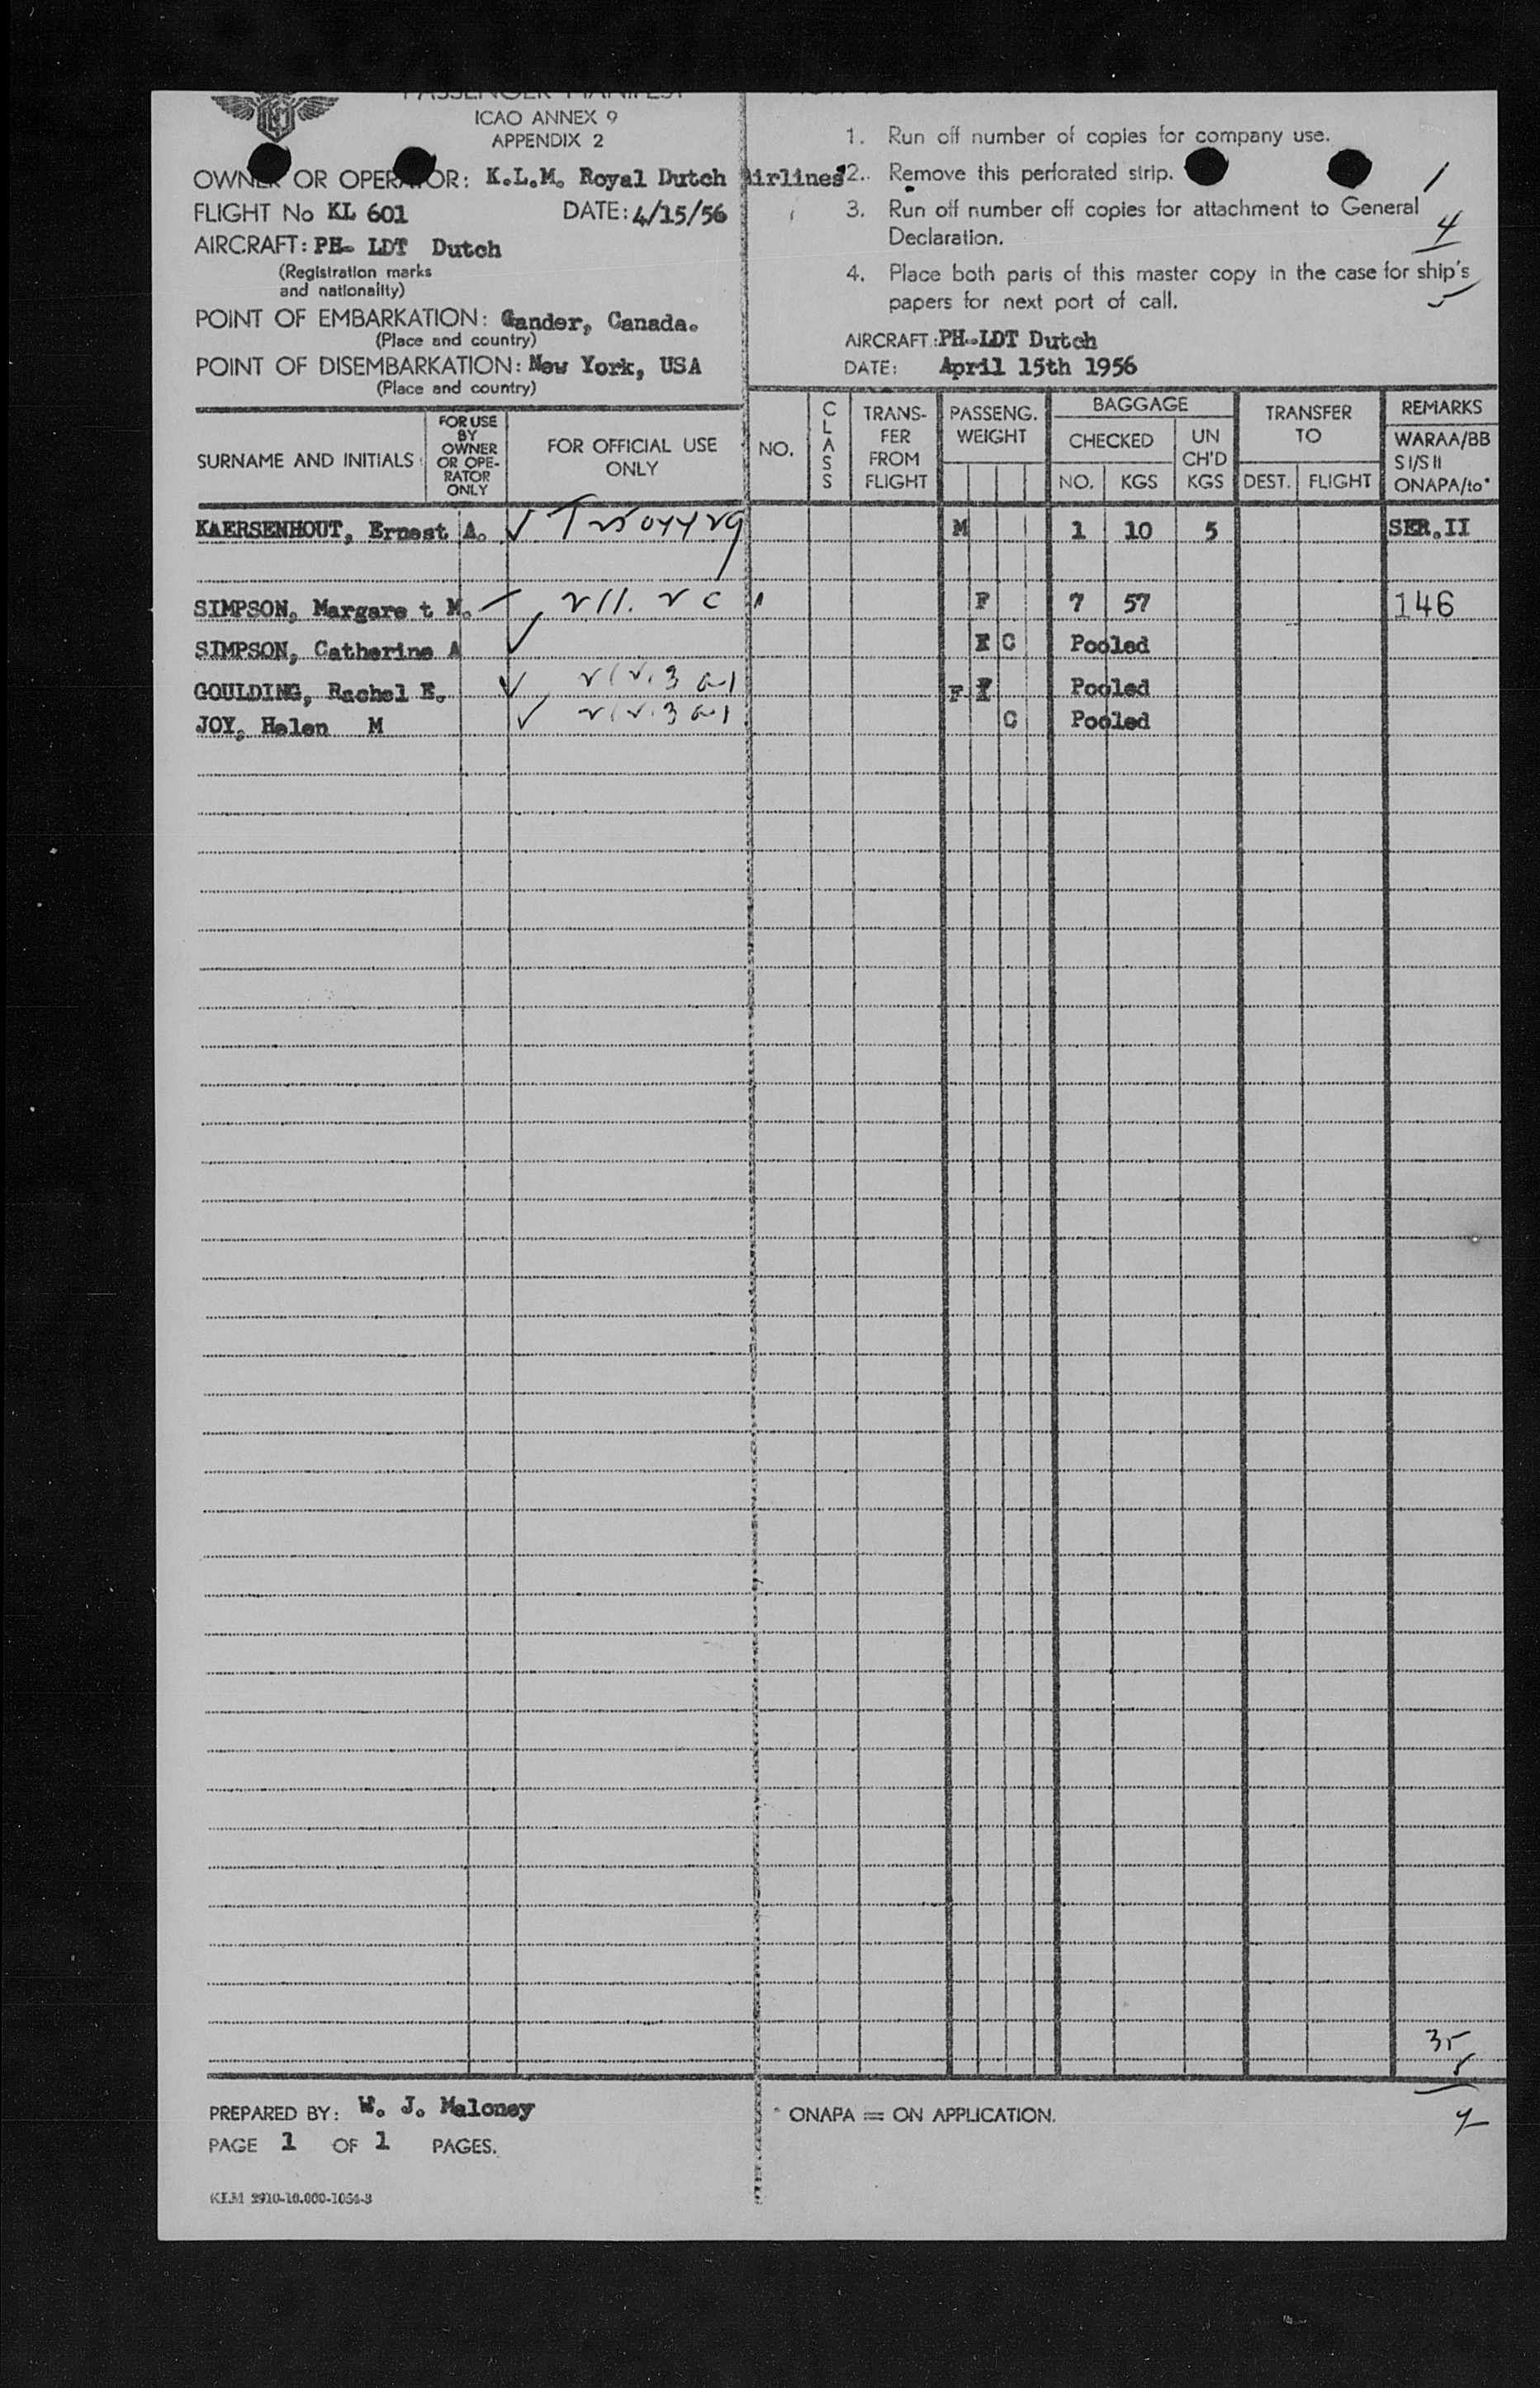 PASSENGER MANIFEST
ICAO ANNEX 9
APPENDIX 2
OWNER OR OPERATOR: K.L.M. Royal Dutch Airlines
FLIGHT No KL 601 DATE: 4/15/56
AIRCRAFT: PH- LDT Dutch
(Registration marks
and nationality)
POINT OF EMBARKATION: Gander, Canada.
(Place and country)
POINT OF DISEMBARKATION: New York, USA
(Place and country)
1. Run off number of copies for company use.
2. Remove this perforated strip.
3. Run off number off copies for attachment to General
Declaration.
4. Place both parts of this master copy in the case for ship's
papers for next port of call.
1
4
5
AIRCRAFT: PH-LDT Dutch
DATE: April 15th 1956
SURNAME AND INITIALS
FOR USE
BY
OWNER
OR OPE-
RATOR
ONLY
FOR OFFICIAL USE
ONLY
NO.
CLASS
TRANS-
FER
FROM
FLIGHT
PASSENG.
WEIGHT
BAGGAGE
CHECKED
NO. KGS
UN
CH'D
KGS
TRANSFER
TO
DEST. FLIGHT
REMARKS
WARAA/BB
S I/S II
ONAPA/to*
KAERSENHOUT, Ernest A. M 1 10 5 SER.II
SIMPSON, Margare t M. F 7 57 146
SIMPSON, Catherine A C Pooled
GOULDING, Rachel E. F Pooled
JOY, Helen M C Pooled
35
5
PREPARED BY: W. J. Maloney
PAGE 1 OF 1 PAGES.
* ONAPA = ON APPLICATION.